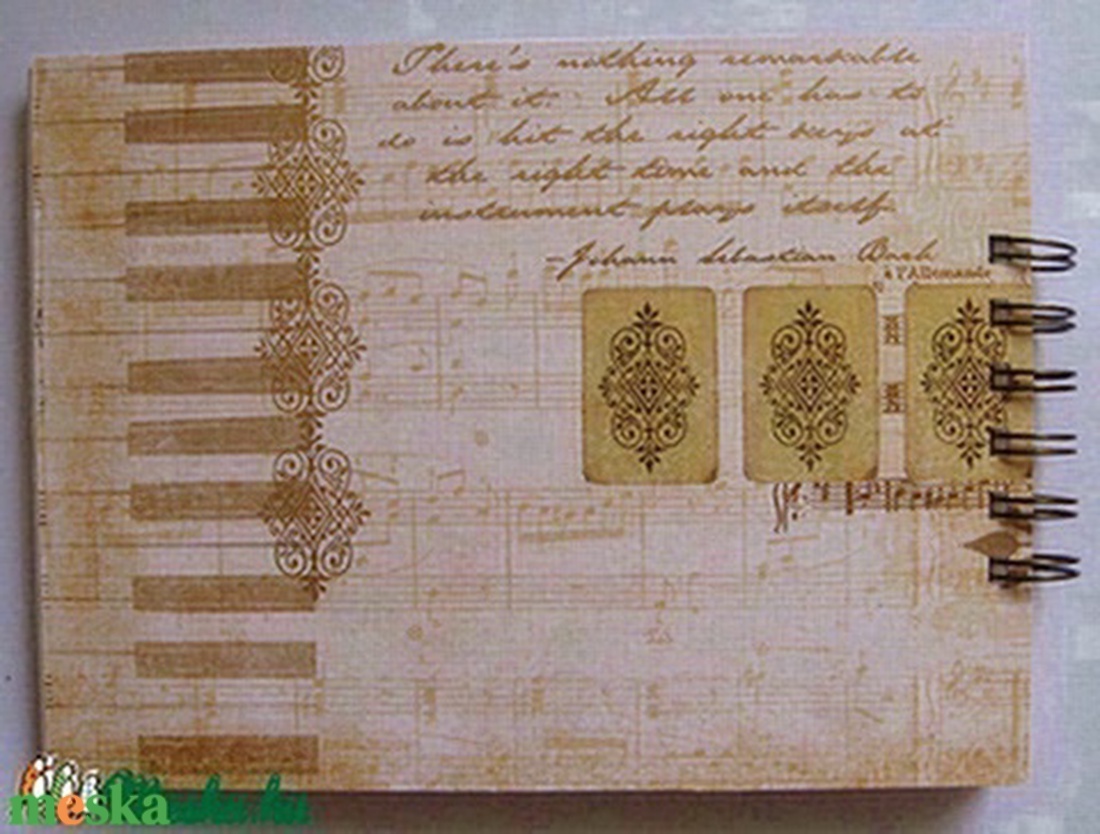 There's nothing remarkable
about it. All one has to
do is hit the right keys at
the right time and the
instrument plays itself.
-Johann Sebastian Bach
à l'Allemande
meska
Meska.hu